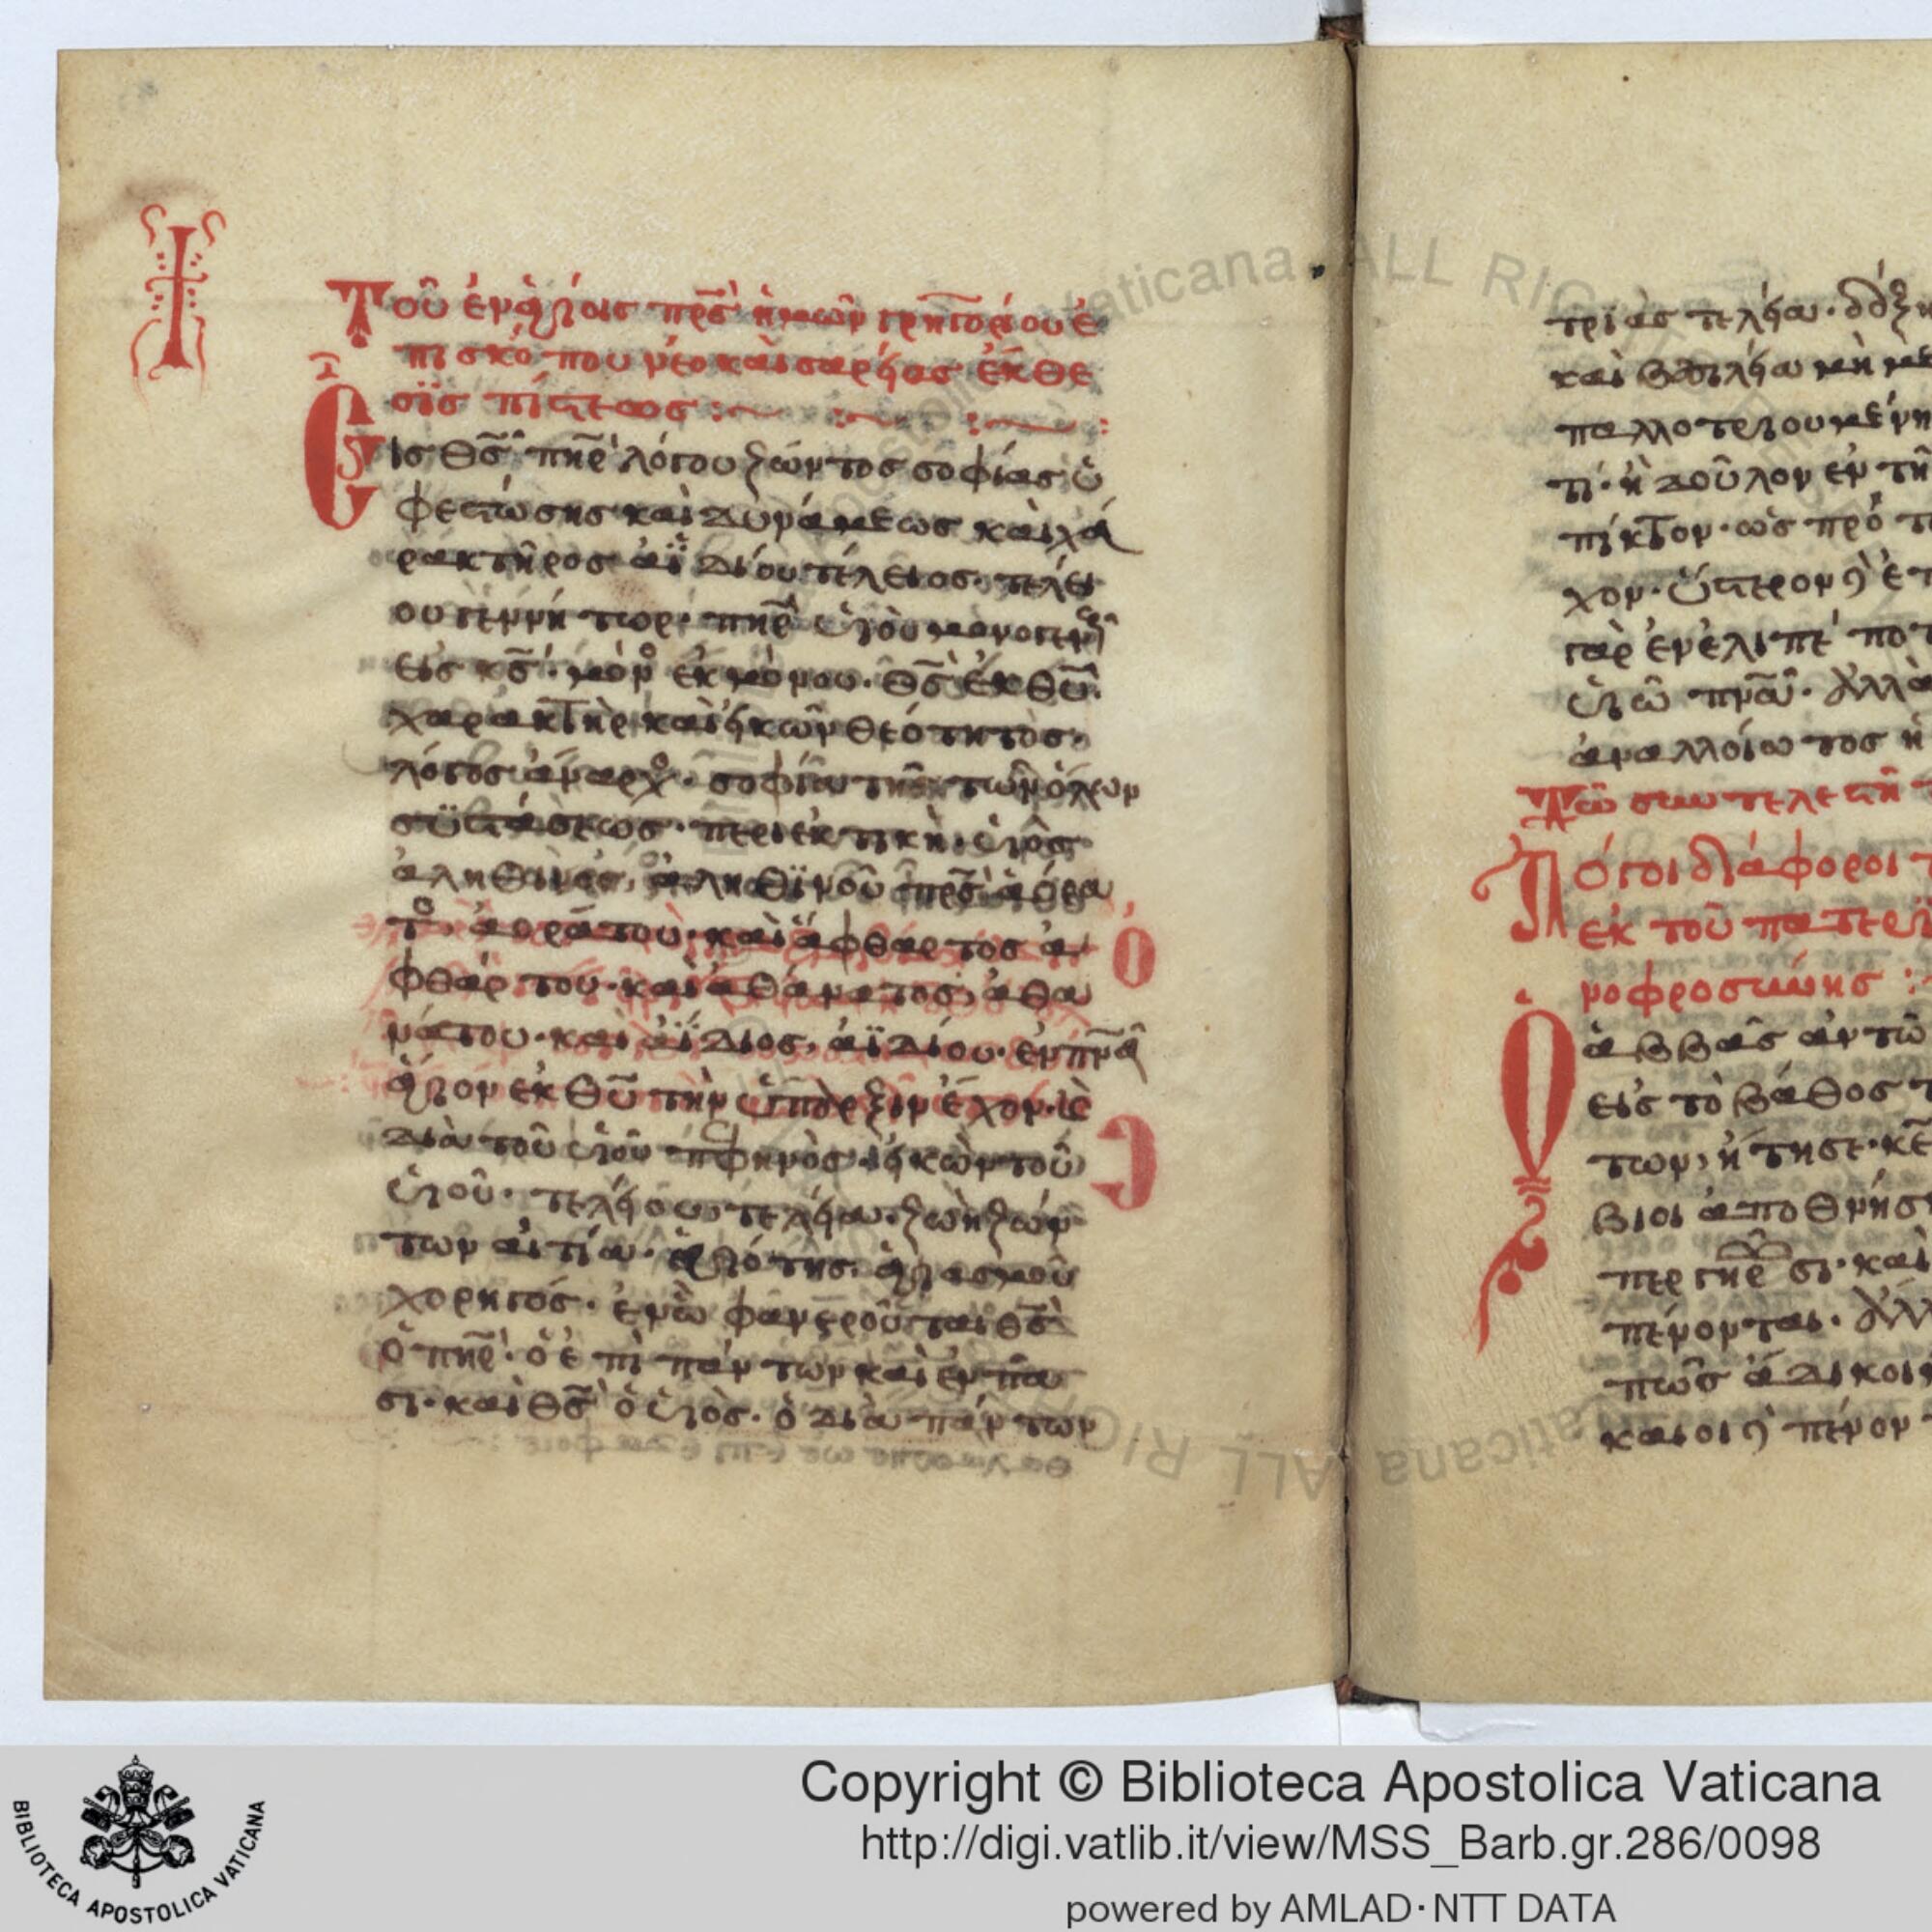 Τοῦ ἐν ἁγίοις πρς ἡμῶν γρηγορίου ἐ
πισκόπου νέο καισαρείας ἔκθε
σϊς πίστεως :~ :~ :~ :
Εἷς θς πηρ λόγου ζῶντος σοφίας ὑ
φεστώσης καὶ δυνάμεως καὶ χα
ρακτῆρος ἀϊδίου τέλειος· τελεί
ου γεννήτωρ· πηρ υἱοῦ μονογενῆ
εἷς κς· μόν ἐκ μόνου· θς ἐκ θυ·
χαρακτὴρ καὶ εἰκὼν θεότητος·
λόγος ἄναρχ· σοφία τῆς τῶν ὅλων
συστάσεως· περιεκτικὴ· υἱὸς
ἀληθινὸς ἀληθϊνοῦ πρς ἀόρα
το ἀοράτου· καὶ ἄφθαρτος ἀ
φθάρτου· καὶ ἀθάνατος, ἀθα
νάτου· καὶ ἀΐδιος, ἀϊδίου· ἓν πνα
ἅγιον ἐκ θυ τὴν ὕπαρξιν ἔχον·
διὰ τοῦ υἱοῦ πεφηνὸς· εἰκὼν τοῦ
υἱοῦ· τελείου τελεία· ζωὴ ζών
των αἰτία· ἁγιότης, ἁγιασμοῦ
χορηγός· ἐν ᾧ φανεροῦται θς
ὁ πηρ· ὁ ἐπὶ πάντων καὶ ἐν πᾶ
σι· καὶ θς ὁ υἱὸς· ὁ διὰ πάντων
τριὰς τελεία· δόξῃ
καὶ βασιλεία μὴ με
παλλοτριουμένη
τι· ἢ δοῦλον ἐν τῇ
χον· ὕστερον
γὰρ ἐνέλιπέ ποτ
υἱῶ πνα· ἀλλὰ
ἀναλλοίωτος ἡ
Λόγοι διάφοροι
ἐκ τοῦ πατερι
νοφροσύνης :
Ὁ ἀββᾶς ἀντώ
εἰς τὸ βάθος τ
των, ἤτησε· κε
βιοι ἀποθνήσ
πένονται· ἀλλ
πῶς ἄδικοι
καιοι πένον
Copyright © Biblioteca Apostolica Vaticana
http://digi.vatlib.it/view/MSS_Barb.gr.286/0098
powered by AMLAD·NTT DATA
BIBLIOTECA APOSTOLICA VATICANA